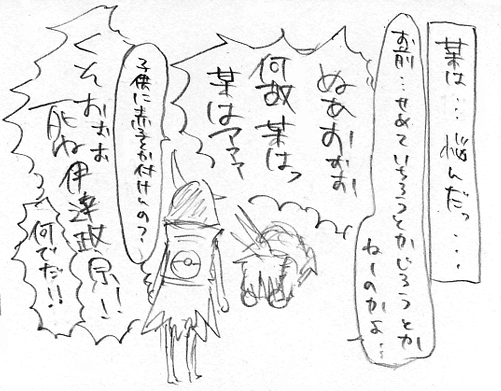 某は…悩んだっ…
お前…せめていちろうとかじろうとか
ねーのかよ…
ぬあおおお
何故某はっ
某はアァァ
子供に赤子とか付けんの?
くそおおお
死ね伊達政宗!!
何でだ!!